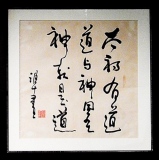 太初有道
道与神同在
神就是道